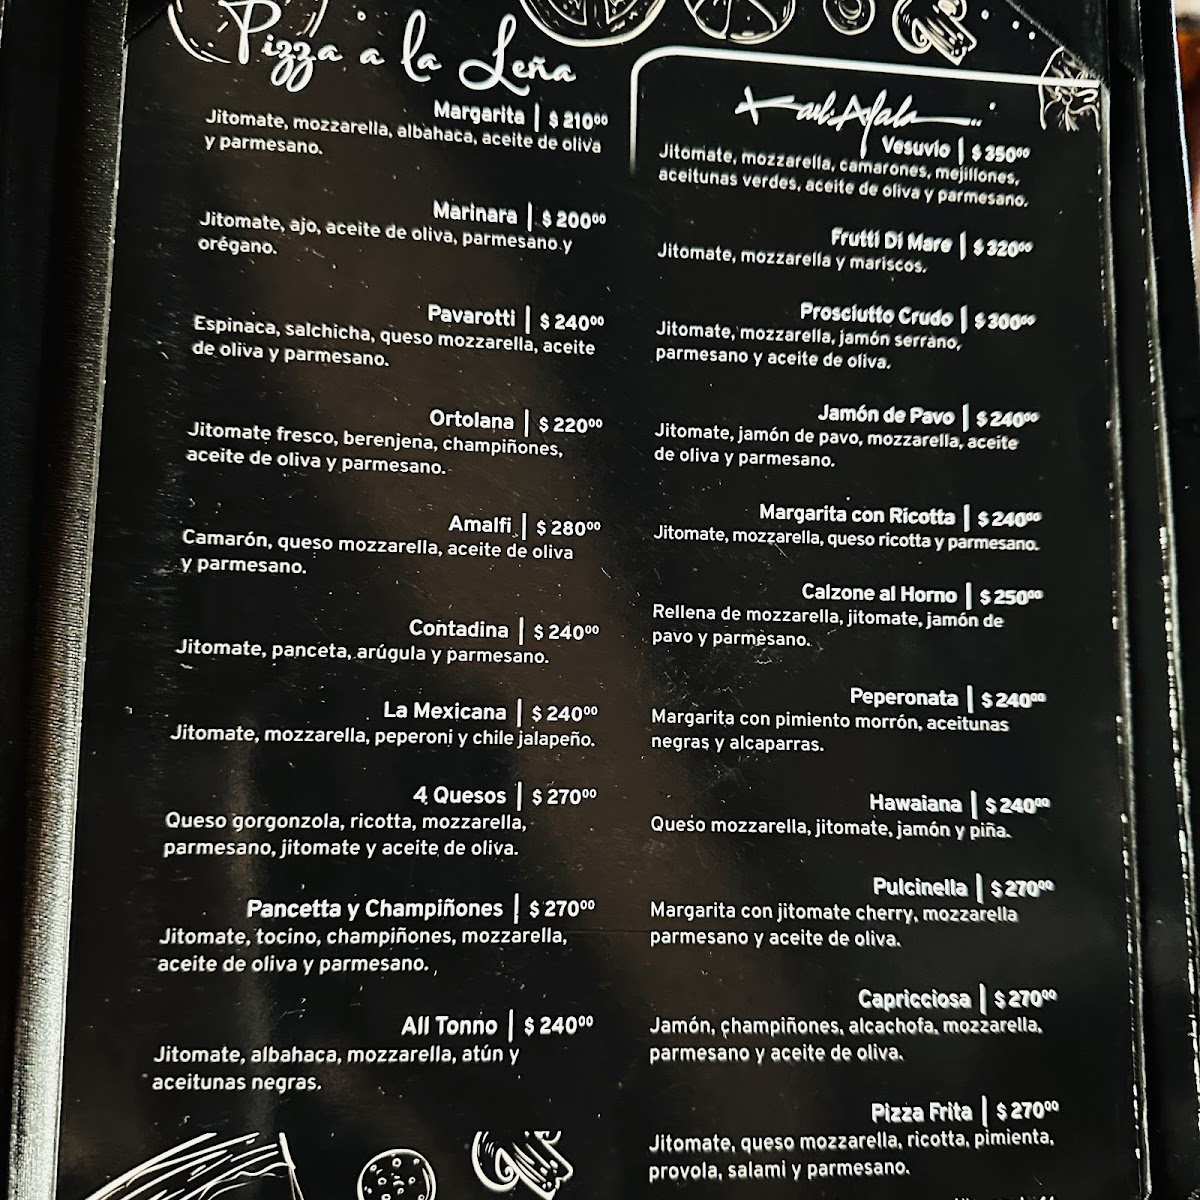 Pizza a la Leña
Margarita | $ 210⁰⁰
Jitomate, mozzarella, albahaca, aceite de oliva
y parmesano.
Marinara | $ 200⁰⁰
Jitomate, ajo, aceite de oliva, parmesano y
orégano.
Pavarotti | $ 240⁰⁰
Espinaca, salchicha, queso mozzarella, aceite
de oliva y parmesano.
Ortolana | $ 220⁰⁰
Jitomate fresco, berenjena, champiñones,
aceite de oliva y parmesano.
Amalfi | $ 280⁰⁰
Camarón, queso mozzarella, aceite de oliva
y parmesano.
Contadina | $ 240⁰⁰
Jitomate, panceta, arúgula y parmesano.
La Mexicana | $ 240⁰⁰
Jitomate, mozzarella, peperoni y chile jalapeño.
4 Quesos | $ 270⁰⁰
Queso gorgonzola, ricotta, mozzarella,
parmesano, jitomate y aceite de oliva.
Pancetta y Champiñones | $ 270⁰⁰
Jitomate, tocino, champiñones, mozzarella,
aceite de oliva y parmesano.
All Tonno | $ 240⁰⁰
Jitomate, albahaca, mozzarella, atún y
aceitunas negras.
Vesuvio | $ 350⁰⁰
Jitomate, mozzarella, camarones, mejillones,
aceitunas verdes, aceite de oliva y parmesano.
Frutti Di Mare | $ 320⁰⁰
Jitomate, mozzarella y mariscos.
Prosciutto Crudo | $ 300⁰⁰
Jitomate, mozzarella, jamón serrano,
parmesano y aceite de oliva.
Jamón de Pavo | $ 240⁰⁰
Jitomate, jamón de pavo, mozzarella, aceite
de oliva y parmesano.
Margarita con Ricotta | $ 240⁰⁰
Jitomate, mozzarella, queso ricotta y parmesano.
Calzone al Horno | $ 250⁰⁰
Rellena de mozzarella, jitomate, jamón de
pavo y parmesano.
Peperonata | $ 240⁰⁰
Margarita con pimiento morrón, aceitunas
negras y alcaparras.
Hawaiana | $ 240⁰⁰
Queso mozzarella, jitomate, jamón y piña.
Pulcinella | $ 270⁰⁰
Margarita con jitomate cherry, mozzarella
parmesano y aceite de oliva.
Capricciosa | $ 270⁰⁰
Jamón, champiñones, alcachofa, mozzarella,
parmesano y aceite de oliva.
Pizza Frita | $ 270⁰⁰
Jitomate, queso mozzarella, ricotta, pimienta,
provola, salami y parmesano.